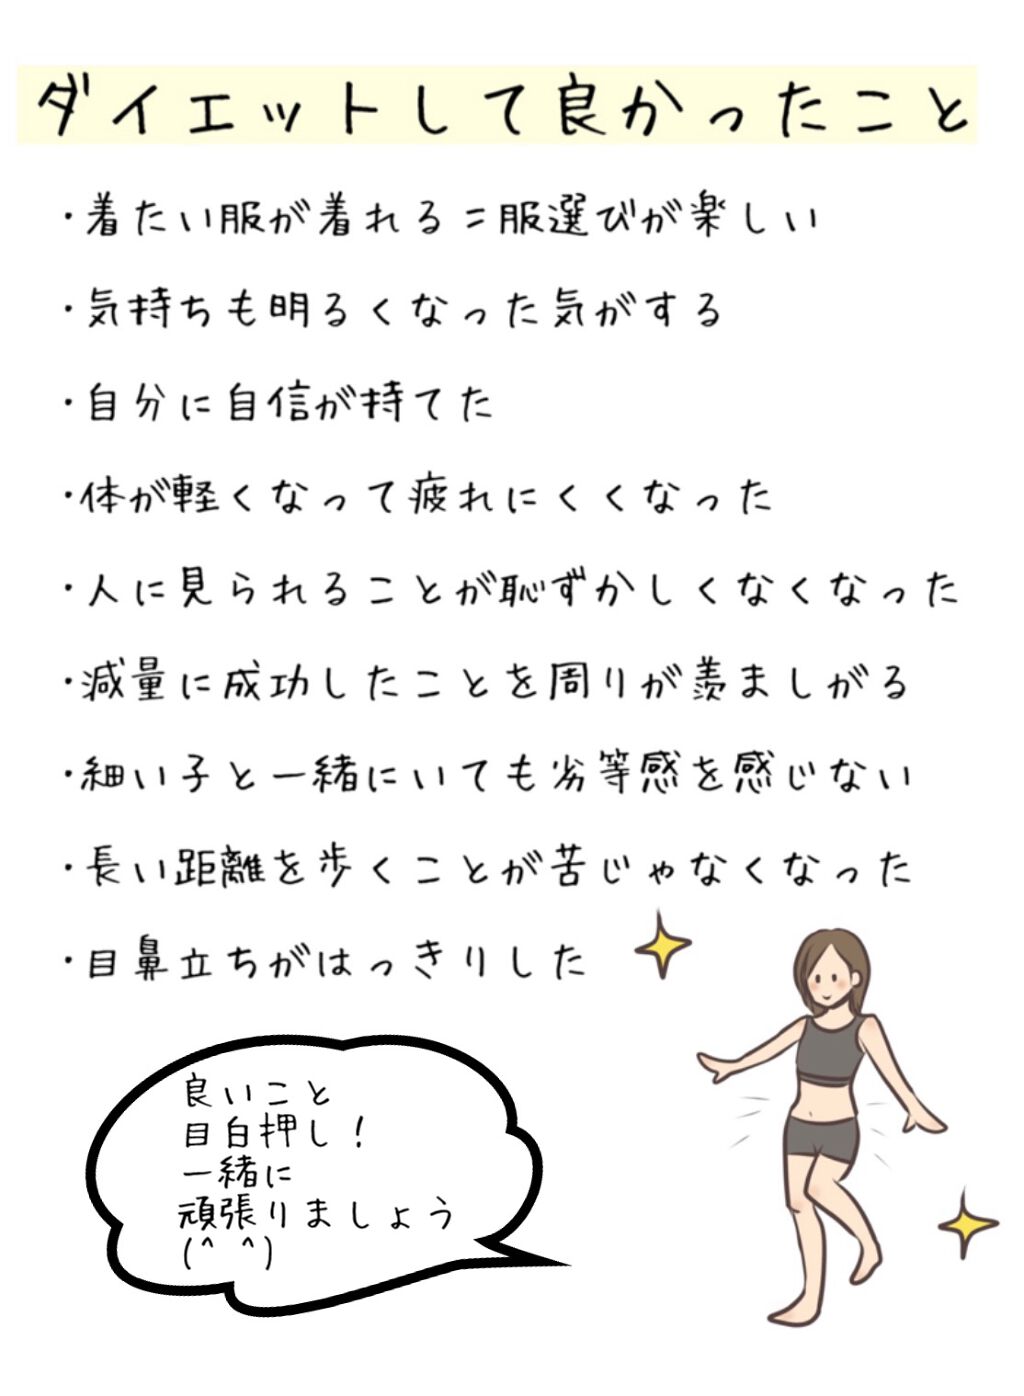 ダイエットして良かったこと
・着たい服が着れる=服選びが楽しい
・気持ちも明るくなった気がする
・自分に自信が持てた
・体が軽くなって疲れにくくなった
・人に見られることが恥ずかしくなくなった
・減量に成功したことを周りが羨ましがる
・細い子と一緒にいても劣等感を感じない
・長い距離を歩くことが苦じゃなくなった
・目鼻立ちがはっきりした
良いこと
目白押し!
一緒に
頑張りましょう
(^ ^)